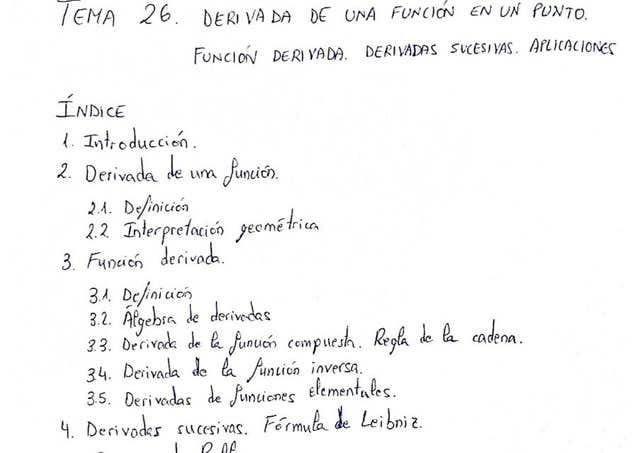 TEMA 26. DERIVADA DE UNA FUNCIÓN EN UN PUNTO.
FUNCIÓN DERIVADA. DERIVADAS SUCESIVAS. APLICACIONES
ÍNDICE
1. Introducción.
2. Derivada de una función.
2.1. Definición
2.2 Interpretación geométrica
3. Función derivada.
3.1. Definición
3.2. Álgebra de derivadas
3.3. Derivada de la función compuesta. Regla de la cadena.
3.4. Derivada de la función inversa.
3.5. Derivadas de funciones elementales.
4. Derivadas sucesivas. Fórmula de Leibniz.